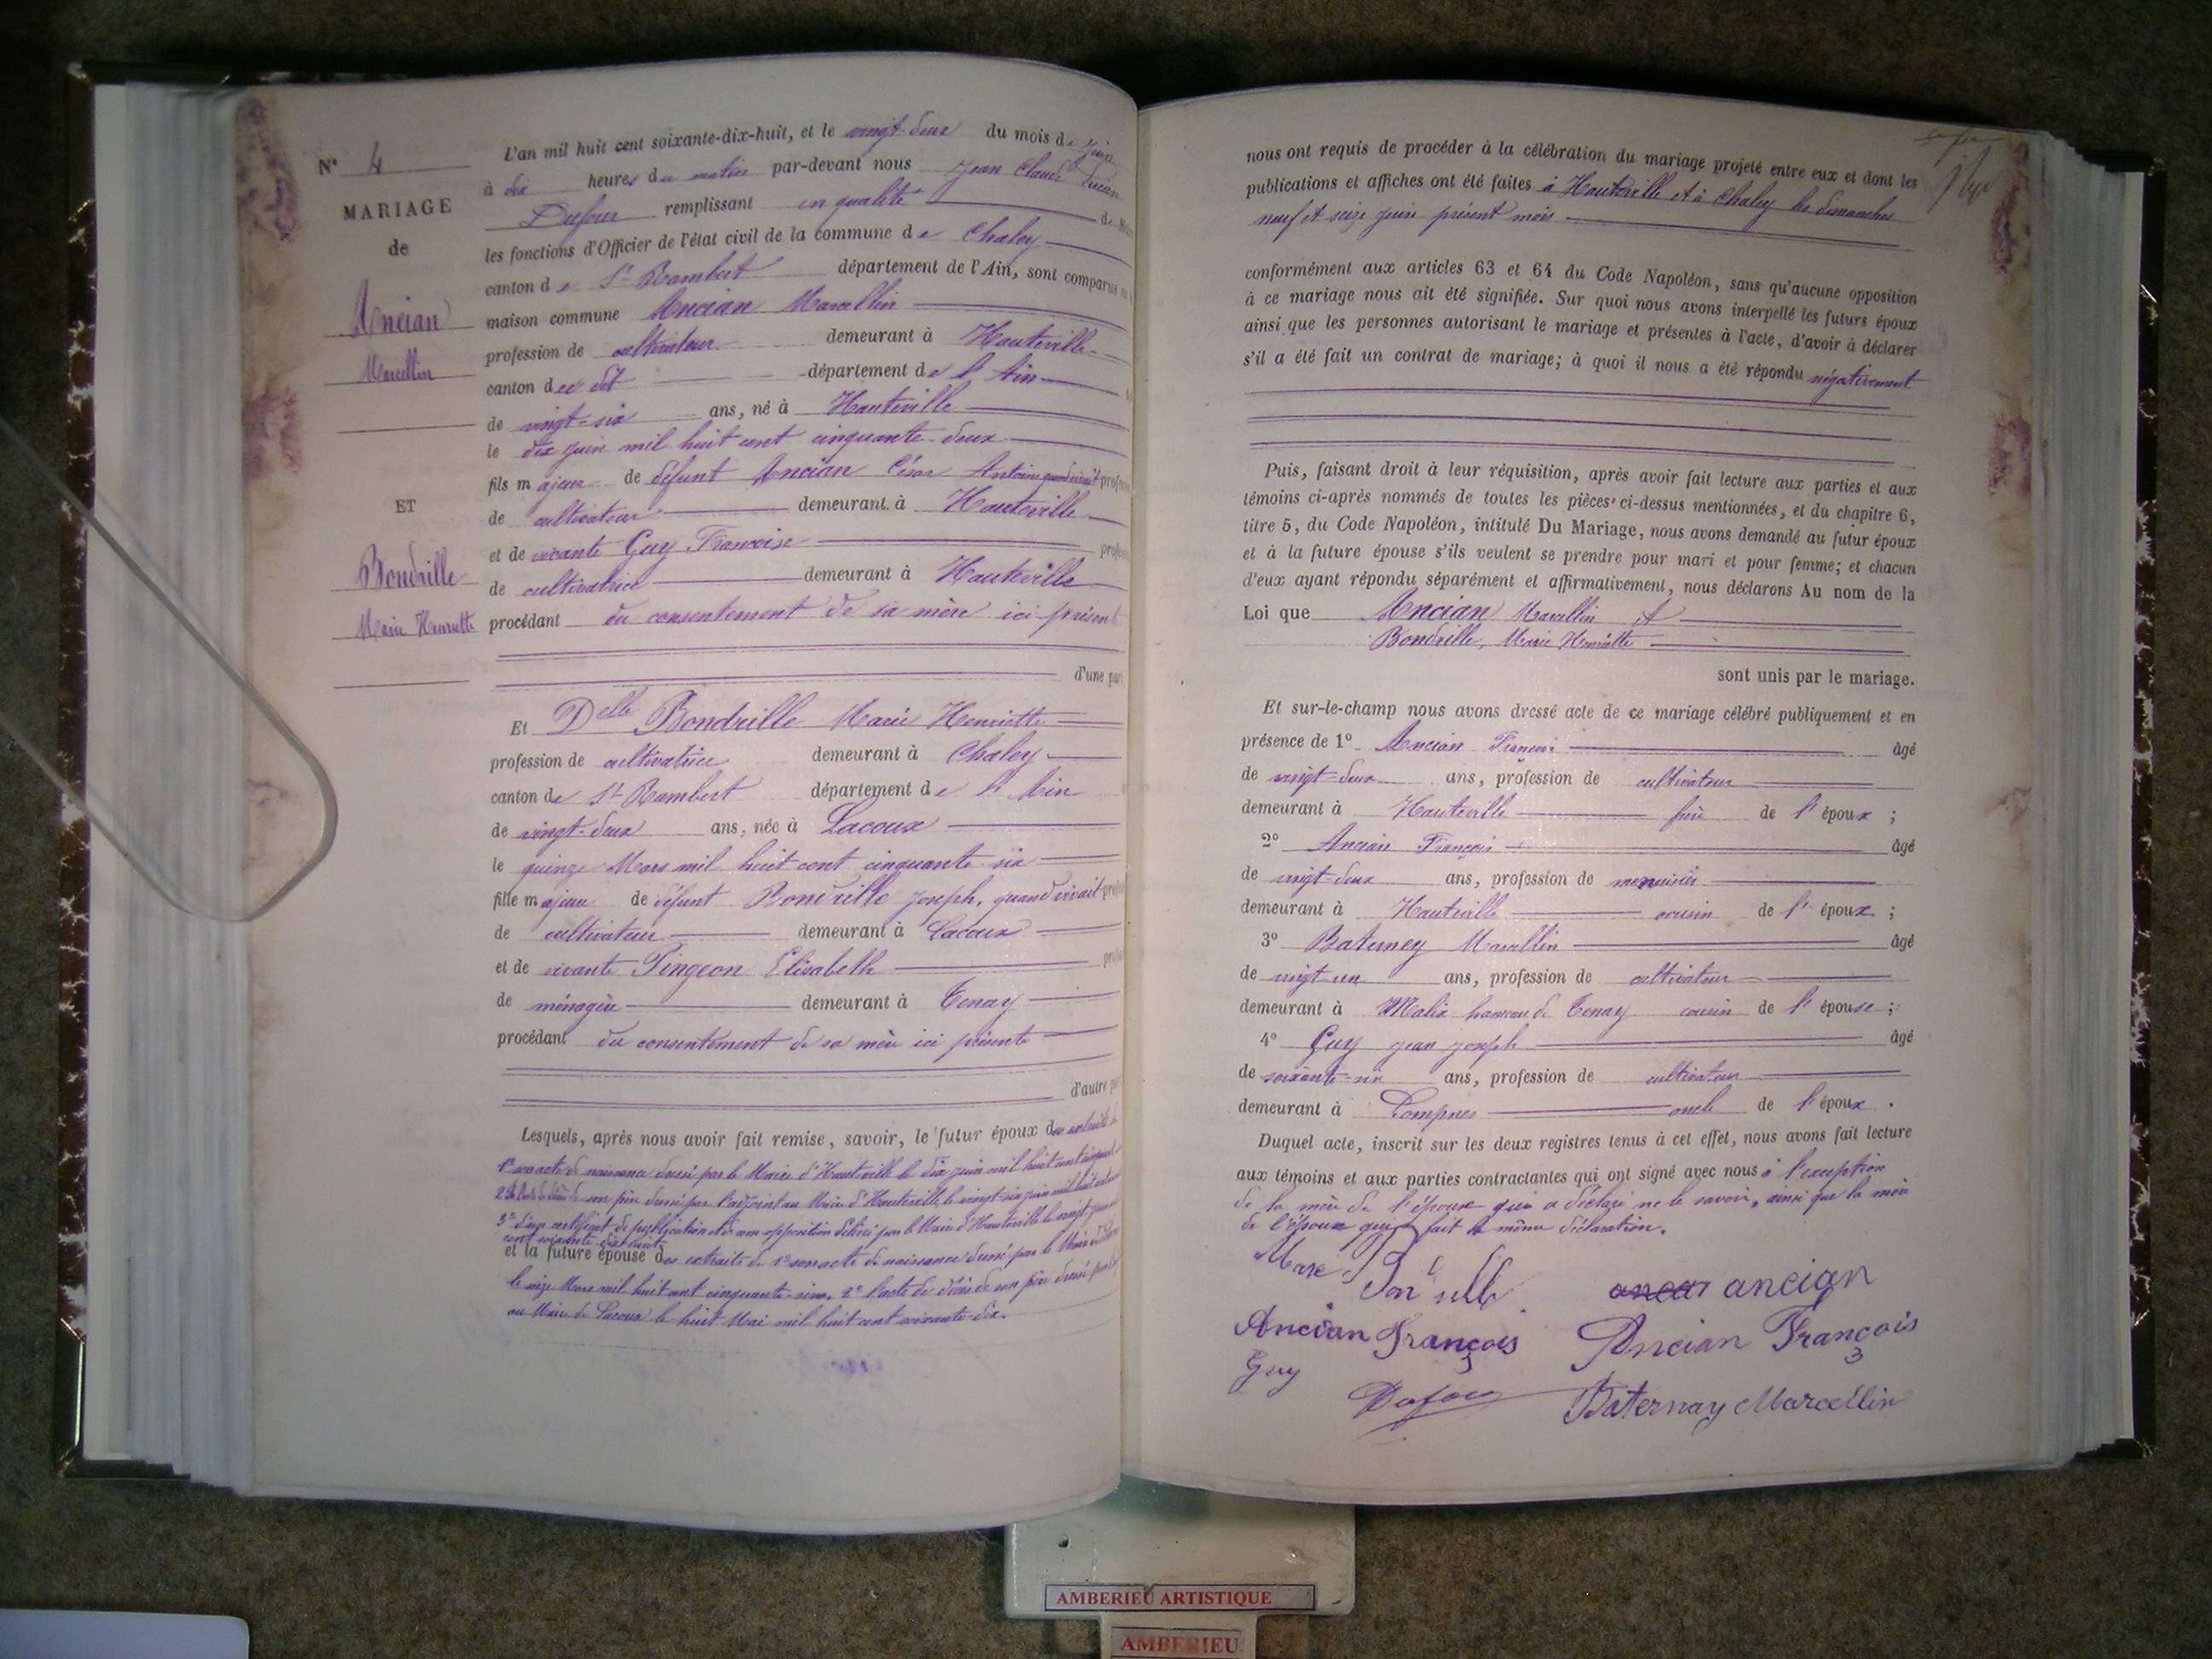 N° 4
MARIAGE
de
Ancian
Marcellin
ET
Bondrille
Marie Henriette
L'an mil huit cent soixante-dix-huit, et le vingt-deux du mois de juin
à dix heures du matin par-devant nous Jean Claude Lucien
Dufour remplissant en qualité de Maire
les fonctions d'Officier de l'état civil de la commune de Chaley
canton de St Rambert département de l'Ain, sont comparus en la
maison commune Ancian Marcellin
profession de cultivateur demeurant à Hauteville
canton du dit département de l'Ain
de vingt-six ans, né à Hauteville
le dix juin mil huit cent cinquante-deux
fils majeur de défunt Ancian César Antoine quand vivait profession
de cultivateur demeurant à Hauteville
et de vivante Guy Françoise profession
de cultivatrice demeurant à Hauteville
procédant du consentement de sa mère ici présente
d'une part
Et Delle Bondrille Marie Henriette
profession de cultivatrice demeurant à Chaley
canton de St Rambert département de l'Ain
de vingt-deux ans, née à Lacoux
le quinze Mars mil huit cent cinquante-six
fille majeure de défunt Bondrille Joseph, quand vivait
de cultivateur demeurant à Lacoux
et de vivante Pingeon Elisabeth
de ménagère demeurant à Tenay
procédant du consentement de sa mère ici présente
d'autre part
Lesquels, après nous avoir fait remise, savoir, le futur époux des extraits de
1° son acte de naissance dressé par le Maire d'Hauteville le dix juin mil huit cent cinquante
2° l'acte de décès de son père dressé par l'adjoint au Maire d'Hauteville, le vingt-six juin mil huit cent
3° d'un certificat de publication et de non opposition délivré par le Maire d'Hauteville le vingt
cent soixante-dix-huit
et la future épouse des extraits de 1° son acte de naissance dressé par le Maire
le seize Mars mil huit cent cinquante-six, 2° l'acte de décès de son père dressé par
au Maire de Lacoux le huit Mai mil huit cent soixante-dix.
nous ont requis de procéder à la célébration du mariage projeté entre eux et dont les
publications et affiches ont été faites à Hauteville et à Chaley les dimanches
neuf et seize juin présent mois
conformément aux articles 63 et 64 du Code Napoléon, sans qu'aucune opposition
à ce mariage nous ait été signifiée. Sur quoi nous avons interpellé les futurs époux
ainsi que les personnes autorisant le mariage et présentes à l'acte, d'avoir à déclarer
s'il a été fait un contrat de mariage; à quoi il nous a été répondu négativement
Puis, faisant droit à leur réquisition, après avoir fait lecture aux parties et aux
témoins ci-après nommés de toutes les pièces ci-dessus mentionnées, et du chapitre 6,
titre 5, du Code Napoléon, intitulé Du Mariage, nous avons demandé au futur époux
et à la future épouse s'ils veulent se prendre pour mari et pour femme; et chacun
d'eux ayant répondu séparément et affirmativement, nous déclarons Au nom de la
Loi que Ancian Marcellin et
Bondrille, Marie Henriette
sont unis par le mariage.
Et sur-le-champ nous avons dressé acte de ce mariage célébré publiquement et en
présence de 1° Ancian François âgé
de vingt-deux ans, profession de cultivateur
demeurant à Hauteville frère de l'époux ;
2° Ancian François âgé
de vingt-deux ans, profession de menuisier
demeurant à Hauteville cousin de l'époux ;
3° Baterney Marcellin âgé
de vingt-un ans, profession de cultivateur
demeurant à Malix hameau de Tenay cousin de l'épouse ;
4° Guy Jean Joseph âgé
de soixante-six ans, profession de cultivateur
demeurant à Lompnes oncle de l'époux .
Duquel acte, inscrit sur les deux registres tenus à cet effet, nous avons fait lecture
aux témoins et aux parties contractantes qui ont signé avec nous à l'exception
de la mère de l'épouse qui a déclaré ne le savoir, ainsi que la mère
de l'époux qui a fait la même déclaration.
Marie Bondrille ancian
Ancian François Ancian François
Guy Dufour Baternay Marcellin
AMBERIEU ARTISTIQUE
AMBERIEU